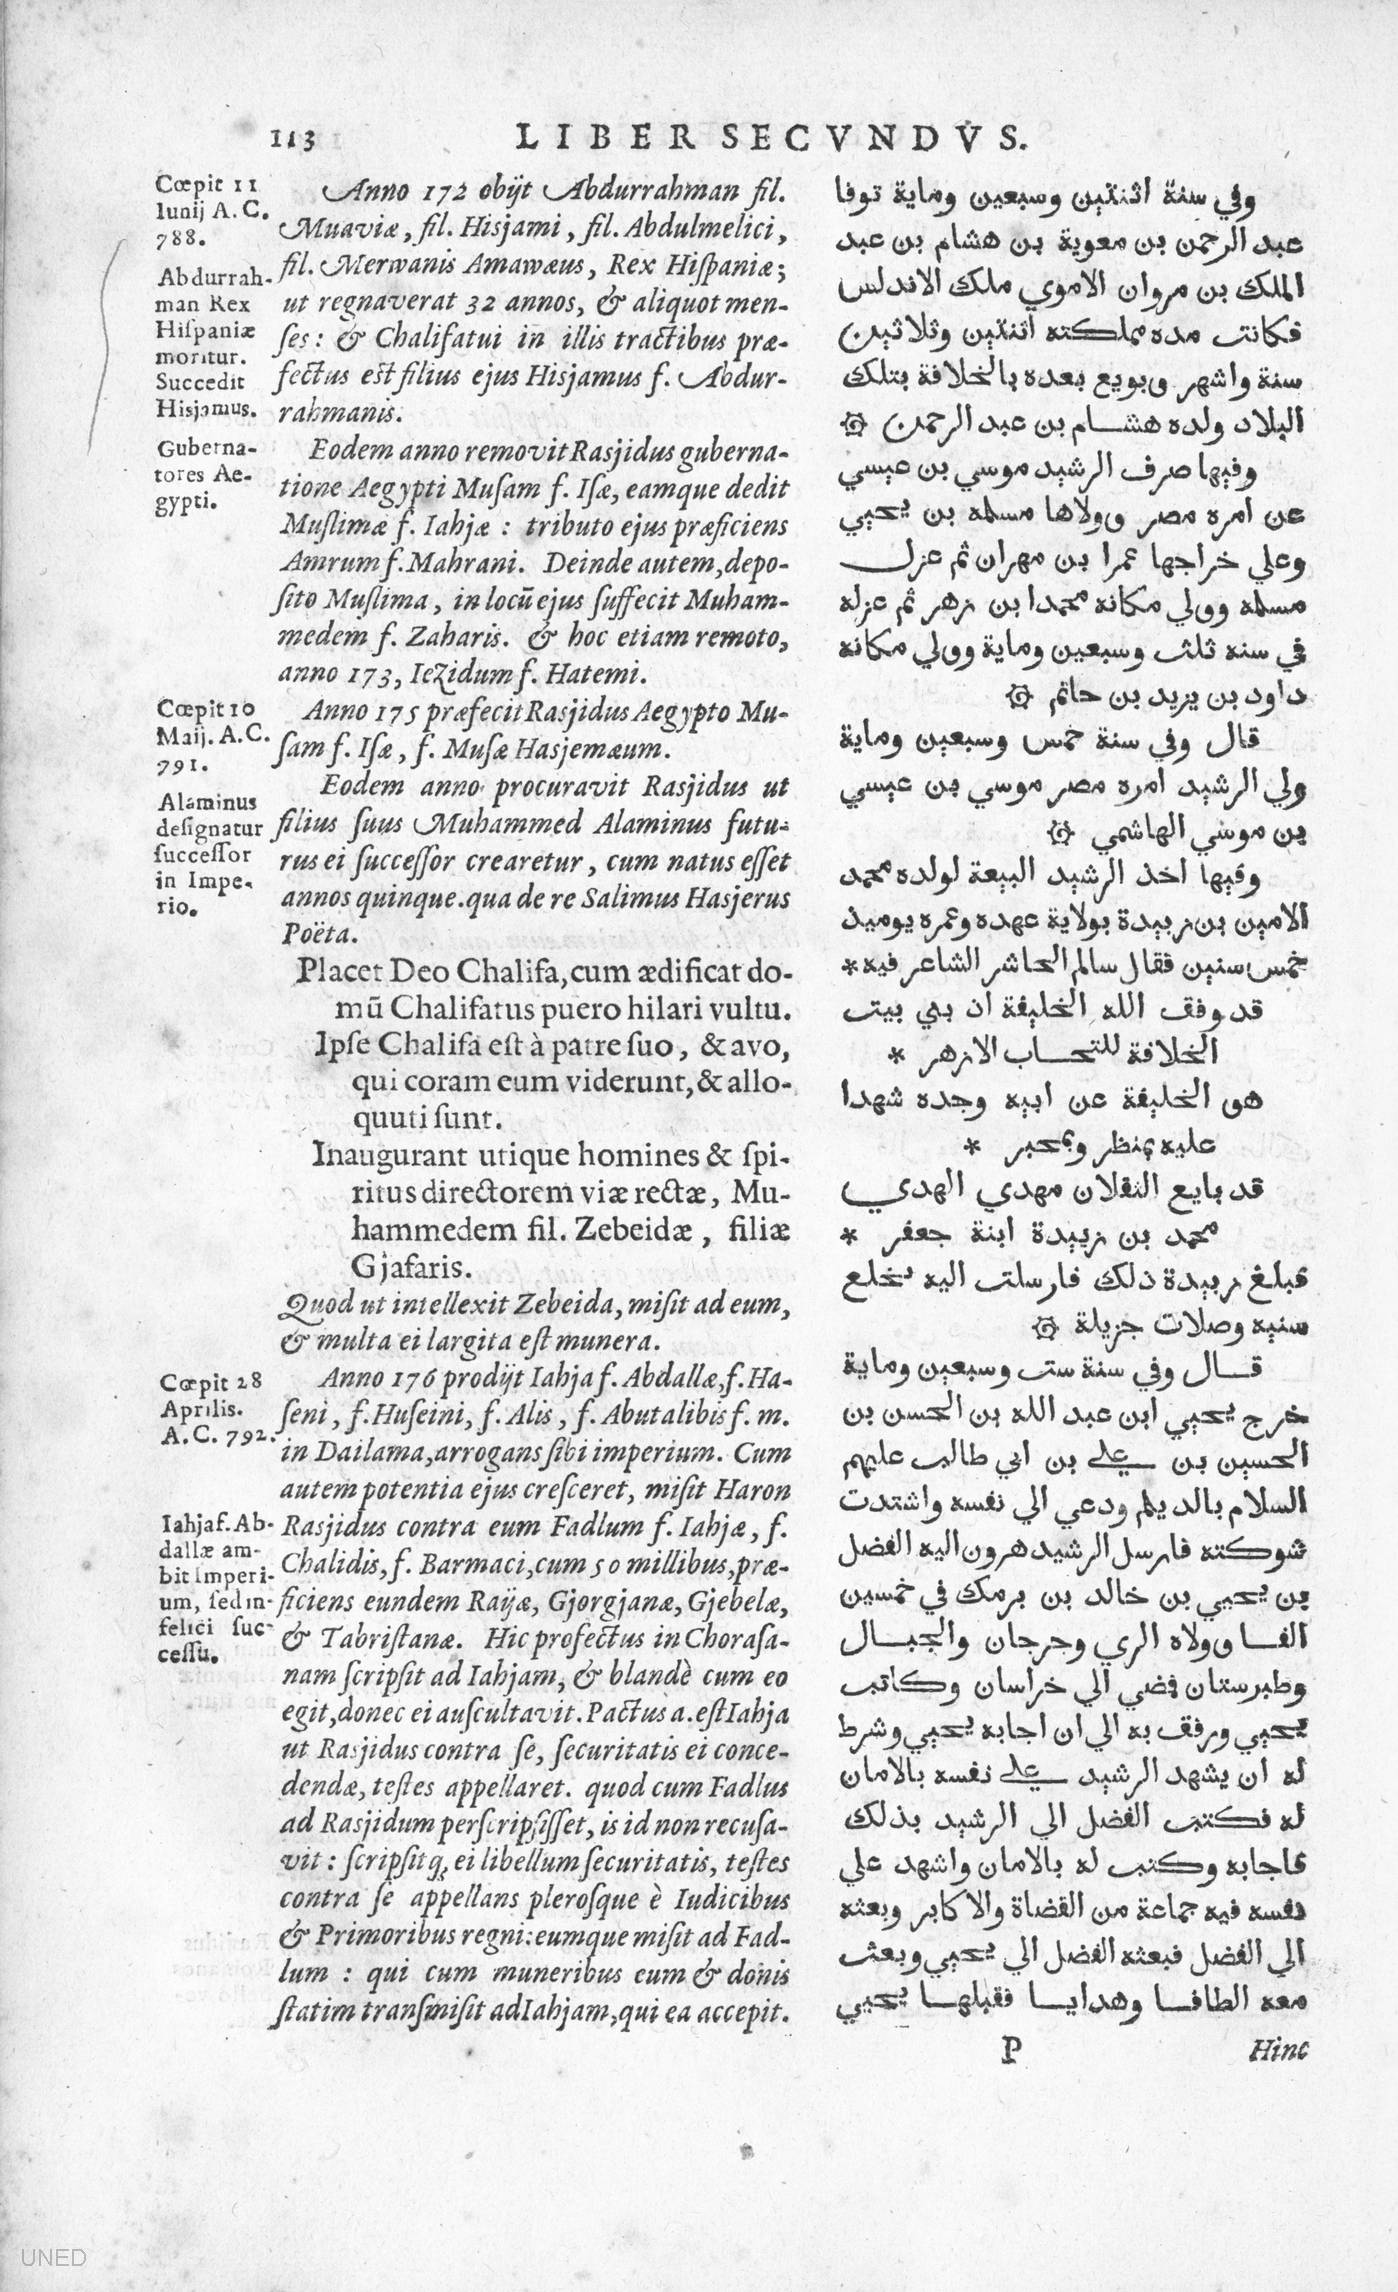 113 LIBER SECVNDVS.
Cœpit 11
Iunij A. C.
788.
Abdurrah-
man Rex
Hiſpaniæ
moritur.
Succedit
Hisjamus.
Guberna-
tores Ae-
gypti.
Cœpit 10
Maij. A.C.
791.
Alaminus
deſignatur
ſucceſſor
in Impe-
rio.
Cœpit 28
Aprilis.
A. C. 792.
Iahja f. Ab-
dallæ am-
bit Imperi-
um, ſed in-
felici ſuc-
ceſſu.
Anno 172 obijt Abdurrahman fil.
Muaviæ, fil. Hisjami, fil. Abdulmelici,
fil. Merwanis Amawæus, Rex Hiſpaniæ;
ut regnaverat 32 annos, & aliquot men-
ſes: & Chalifatui in illis tractibus præ-
fectus est filius ejus Hisjamus f. Abdur-
rahmanis.
Eodem anno removit Rasjidus guberna-
tione Aegypti Muſam f. Iſæ, eamque dedit
Muſlimæ f. Iahjæ: tributo ejus præficiens
Amrum f. Mahrani. Deinde autem, depo-
ſito Muſlima, in locū ejus ſuffecit Muham-
medem f. Zaharis. & hoc etiam remoto,
anno 173, Iezidum f. Hatemi.
Anno 175 præfecit Rasjidus Aegypto Mu-
ſam f. Iſæ, f. Muſæ Hasjemæum.
Eodem anno procuravit Rasjidus ut
filius ſuus Muhammed Alaminus futu-
rus ei ſucceſſor crearetur, cum natus eſſet
annos quinque. qua de re Salimus Hasjerus
Poëta.
Placet Deo Chalifa, cum ædificat do-
mū Chalifatus puero hilari vultu.
Ipſe Chalifa eſt à patre ſuo, & avo,
qui coram eum viderunt, & allo-
quuti ſunt.
Inaugurant utique homines & ſpi-
ritus directorem viæ rectæ, Mu-
hammedem fil. Zebeidæ, filiæ
Gjafaris.
Quod ut intellexit Zebeida, miſit ad eum,
& multa ei largita eſt munera.
Anno 176 prodijt Iahja f. Abdallæ, f. Ha-
ſeni, f. Huſeini, f. Alis, f. Abutalibis f. m.
in Dailama, arrogans ſibi imperium. Cum
autem potentia ejus creſceret, miſit Haron
Rasjidus contra eum Fadlum f. Iahjæ, f.
Chalidis, f. Barmaci, cum 50 millibus, præ-
ficiens eundem Raijæ, Gjorgjanæ, Gjebelæ,
& Tabriſtanæ. Hic profectus in Choraſa-
nam ſcripſit ad Iahjam, & blandè cum eo
egit, donec ei auſcultavit. Pactus a. eſt Iahja
ut Rasjidus contra ſe, ſecuritatis ei conce-
dendæ, teſtes appellaret. quod cum Fadlus
ad Rasjidum perſcripſiſſet, is id non recuſa-
vit: ſcripſitq; ei libellum ſecuritatis, teſtes
contra ſe appellans pleroſque è Iudicibus
& Primoribus regni: eumque miſit ad Fad-
lum: qui cum muneribus eum & donis
ſtatim transmiſit ad Iahjam, qui ea accepit.
وفي سنة اثنتين وسبعين وماية توفا
عبد الرحمن بن معوية بن هشام بن عبد
الملك بن مروان الاموي ملك الاندلس
فكانت مده مملكته اثنتين وثلاثين
سنة واشهر وبويع بعده بالخلافة بتلك
البلاد ولده هشام بن عبد الرحمن ۞
وفيها صرف الرشيد موسي بن عيسي
عن امره مصر وولاها مسلمه بن يحيي
وعلي خراجها عمرا بن مهران ثم عزل
مسلمه وولي مكانه محمدا بن زهر ثم عزله
في سنه ثلث وسبعين وماية وولي مكانه
داود بن يزيد بن حاتم ۞
قال وفي سنة خمس وسبعين وماية
ولي الرشيد امره مصر موسي بن عيسي
بن موسي الهاشمي ۞
وفيها اخذ الرشيد البيعة لولده محمد
الامين بن زبيدة بولاية عهده وعمره يوميذ
خمس سنين فقال سالم الحاشر الشاعر فيه *
قد وفق الله الخليفة ان بني بيت
الخلافة للتحاب الازهر *
هو الخليفة عن ابيه وجده شهدا
عليه بمنظر وبمخبر *
قد بايع الثقلان مهدي الهدي
محمد بن زبيدة ابنة جعفر *
فبلغ زبيدة ذلك فارسلت اليه بخلع
سنيه وصلات جزيلة ۞
قال وفي سنة ست وسبعين وماية
خرج يحيي ابن عبد الله بن الحسن بن
الحسين بن علي بن ابي طالب عليهم
السلام بالديلم ودعي الي نفسه واشتدت
شوكته فارسل الرشيد هرون اليه الفضل
بن يحيي بن خالد بن برمك في خمسين
الفا وولاه الري وجرجان والجبال
وطبرستان فضي الي خراسان وكاتب
يحيي ورفق به الي ان اجابه يحيي وشرط
له ان يشهد الرشيد علي نفسه بالامان
له فكتب الفضل الي الرشيد بذلك
فاجابه وكتب له بالامان واشهد علي
نفسه فيه جماعة من القضاة والاكابر وبعثه
الي الفضل فبعثه الفضل الي يحيي وبعث
معه الطافا وهدايا فقبلها يحيي
P Hinc
UNED